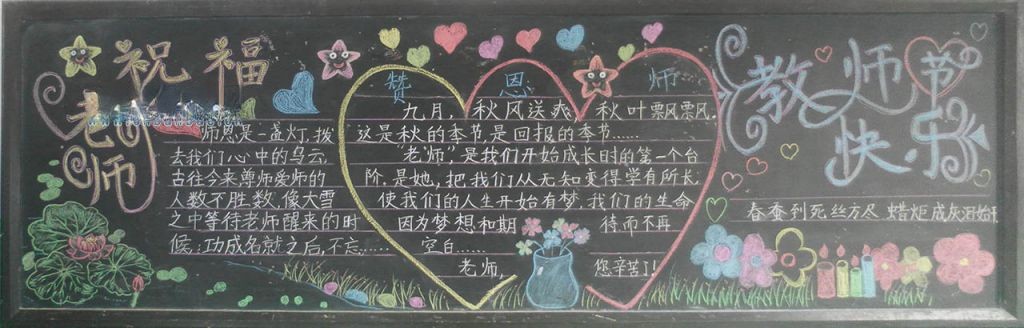 祝福
老师
师恩是一盏灯,拨
去我们心中的乌云,
古往今来尊师爱师的
人数不胜数,像大雪
之中等待老师醒来的时
候;功成名就之后,不忘……
赞 恩 师
九月,秋风送爽,秋叶飘飘.
这是秋的季节,是回报的季节……
"老师",是我们开始成长时的第一个台
阶.是她,把我们从无知变得学有所长,
使我们的人生开始有梦.我们的生命
因为梦想和期待而不再
空白……
老师,您辛苦了!
教师节
快乐
春蚕到死丝方尽 蜡炬成灰泪始干